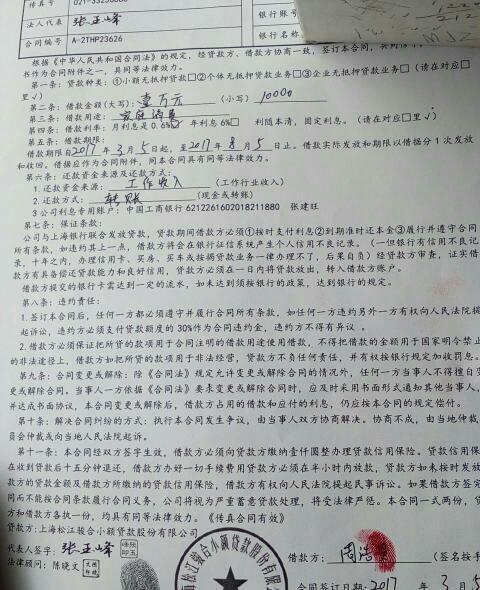 传真号 021-33250886
法人代表 张正峰 银行账号
合同编号 A-2THP23626 银行名称
根据《中华人民共和国合同法》的规定，经贷款方、借款方协商一致，签订本合同，
书作为合同附件之一，具同等法律效力。
第一条：贷款种类：①小额无抵押贷款□②个体无抵押贷款业务□③企业无抵押贷款业务□（请在对应□
里√）
第二条：借款金额(大写)：壹万元 (小写) 10000
第三条：借款用途：家庭消费
第四条：借款利率：月利息是0.6%☑ 年利息6%□ 利随本清，固定利息。（请在对应□里√）
第五条：借款期限：
借款期限自2017年3月5日起，至2017年8月5日止。借款实际发放和期限以借据分1次发放
和收回。借据应作为合同附件，同本合同具有同等法律效力。
第六条：还款资金来源及还款方式：
1.还款资金来源： 工作收入 (工作行业收入)
2.还款方式： 转账 (现金或转账)
3公司利息专用账户：中国工商银行 6212261602018211880 张建旺
第七条：保证条款：
公司与上海银行联合发放贷款，贷款期间借款方必须①按时支付利息②到期准时还本金③履行并遵守合同
所有条款，如违约其上一点，借款方将会在银行征信系统产生个人信用不良记录。（一但银行有信用不良记
录，十年之内，办理信用卡、买房、买车或按揭贷款业务一律办理不了，后果自负）经贷款方审查，证实借
款方有具备偿还贷款能力和良好信用，贷款方必须在一日内将贷款放出，转入借款方账户。
借款方提交的银行卡需达到一定的流水，如未达到须按银行的政策，达到银行的规定。
第八条：违约责任：
1.签订本合同后，任何一方都必须遵守并履行合同所有条款，如任何一方违约另外一方有权向人民法院提
起诉讼，违约方必须支付贷款额度的30%作为合同违约金，违约方不得有异议 。
2.借款方必须保证把所贷的款项用于合同注明的借款用途使用借款，不得把借款的金额用于国家明令禁止
的非法途径上，借款方如把所贷的款项用于非法经营，贷款方不负任何责任，并有权按银行规定加收罚息。
第九条：合同变更或解除：除《合同法》规定允许变更或解除合同的情况外，任何一方当事人不得擅自变
更或解除合同。当事人一方依据《合同法》要求变更或解除合同时，应及时采用书面形式通知其他当事人，
并达成书面协议，本合同变更或解除后，借款方占用的借款和应付的利息，仍应按本合同的规定偿付。
第十条：解决合同纠纷的方式：执行本合同发生争议，由当事人双方协商解决。协商不成，由当地仲裁
员会仲裁或向当地人民法院起诉。
第十一条：本合同经双方签字生效，借款方必须向贷款方缴纳壹仟圆整办理贷款信用保险。贷款信用保
在收到贷款后十五分钟退还，借款方办好一切手续费用贷款方必须在半小时内放款，贷款方如未按时发放
款方的贷款金额及借款方所缴纳的贷款信用保险，借款方有权向人民法院提起民事诉讼。如果借款方签定
同而不能按合同条款履行合同义务，公司将视为严重蓄意贷款处理，将受法律严惩。本合同一式两份，贷
方和借款方各执一份，均具有同等法律效力。《传真合同有效》
贷款方:上海松江骏合小额贷款股份有限公司
代表人签字: 张正峰
法律顾问: 陈晓文
松江骏合小额贷款股份有限
借款方: 周浩 (签名按手
合同签订日期:2017 年 3月5